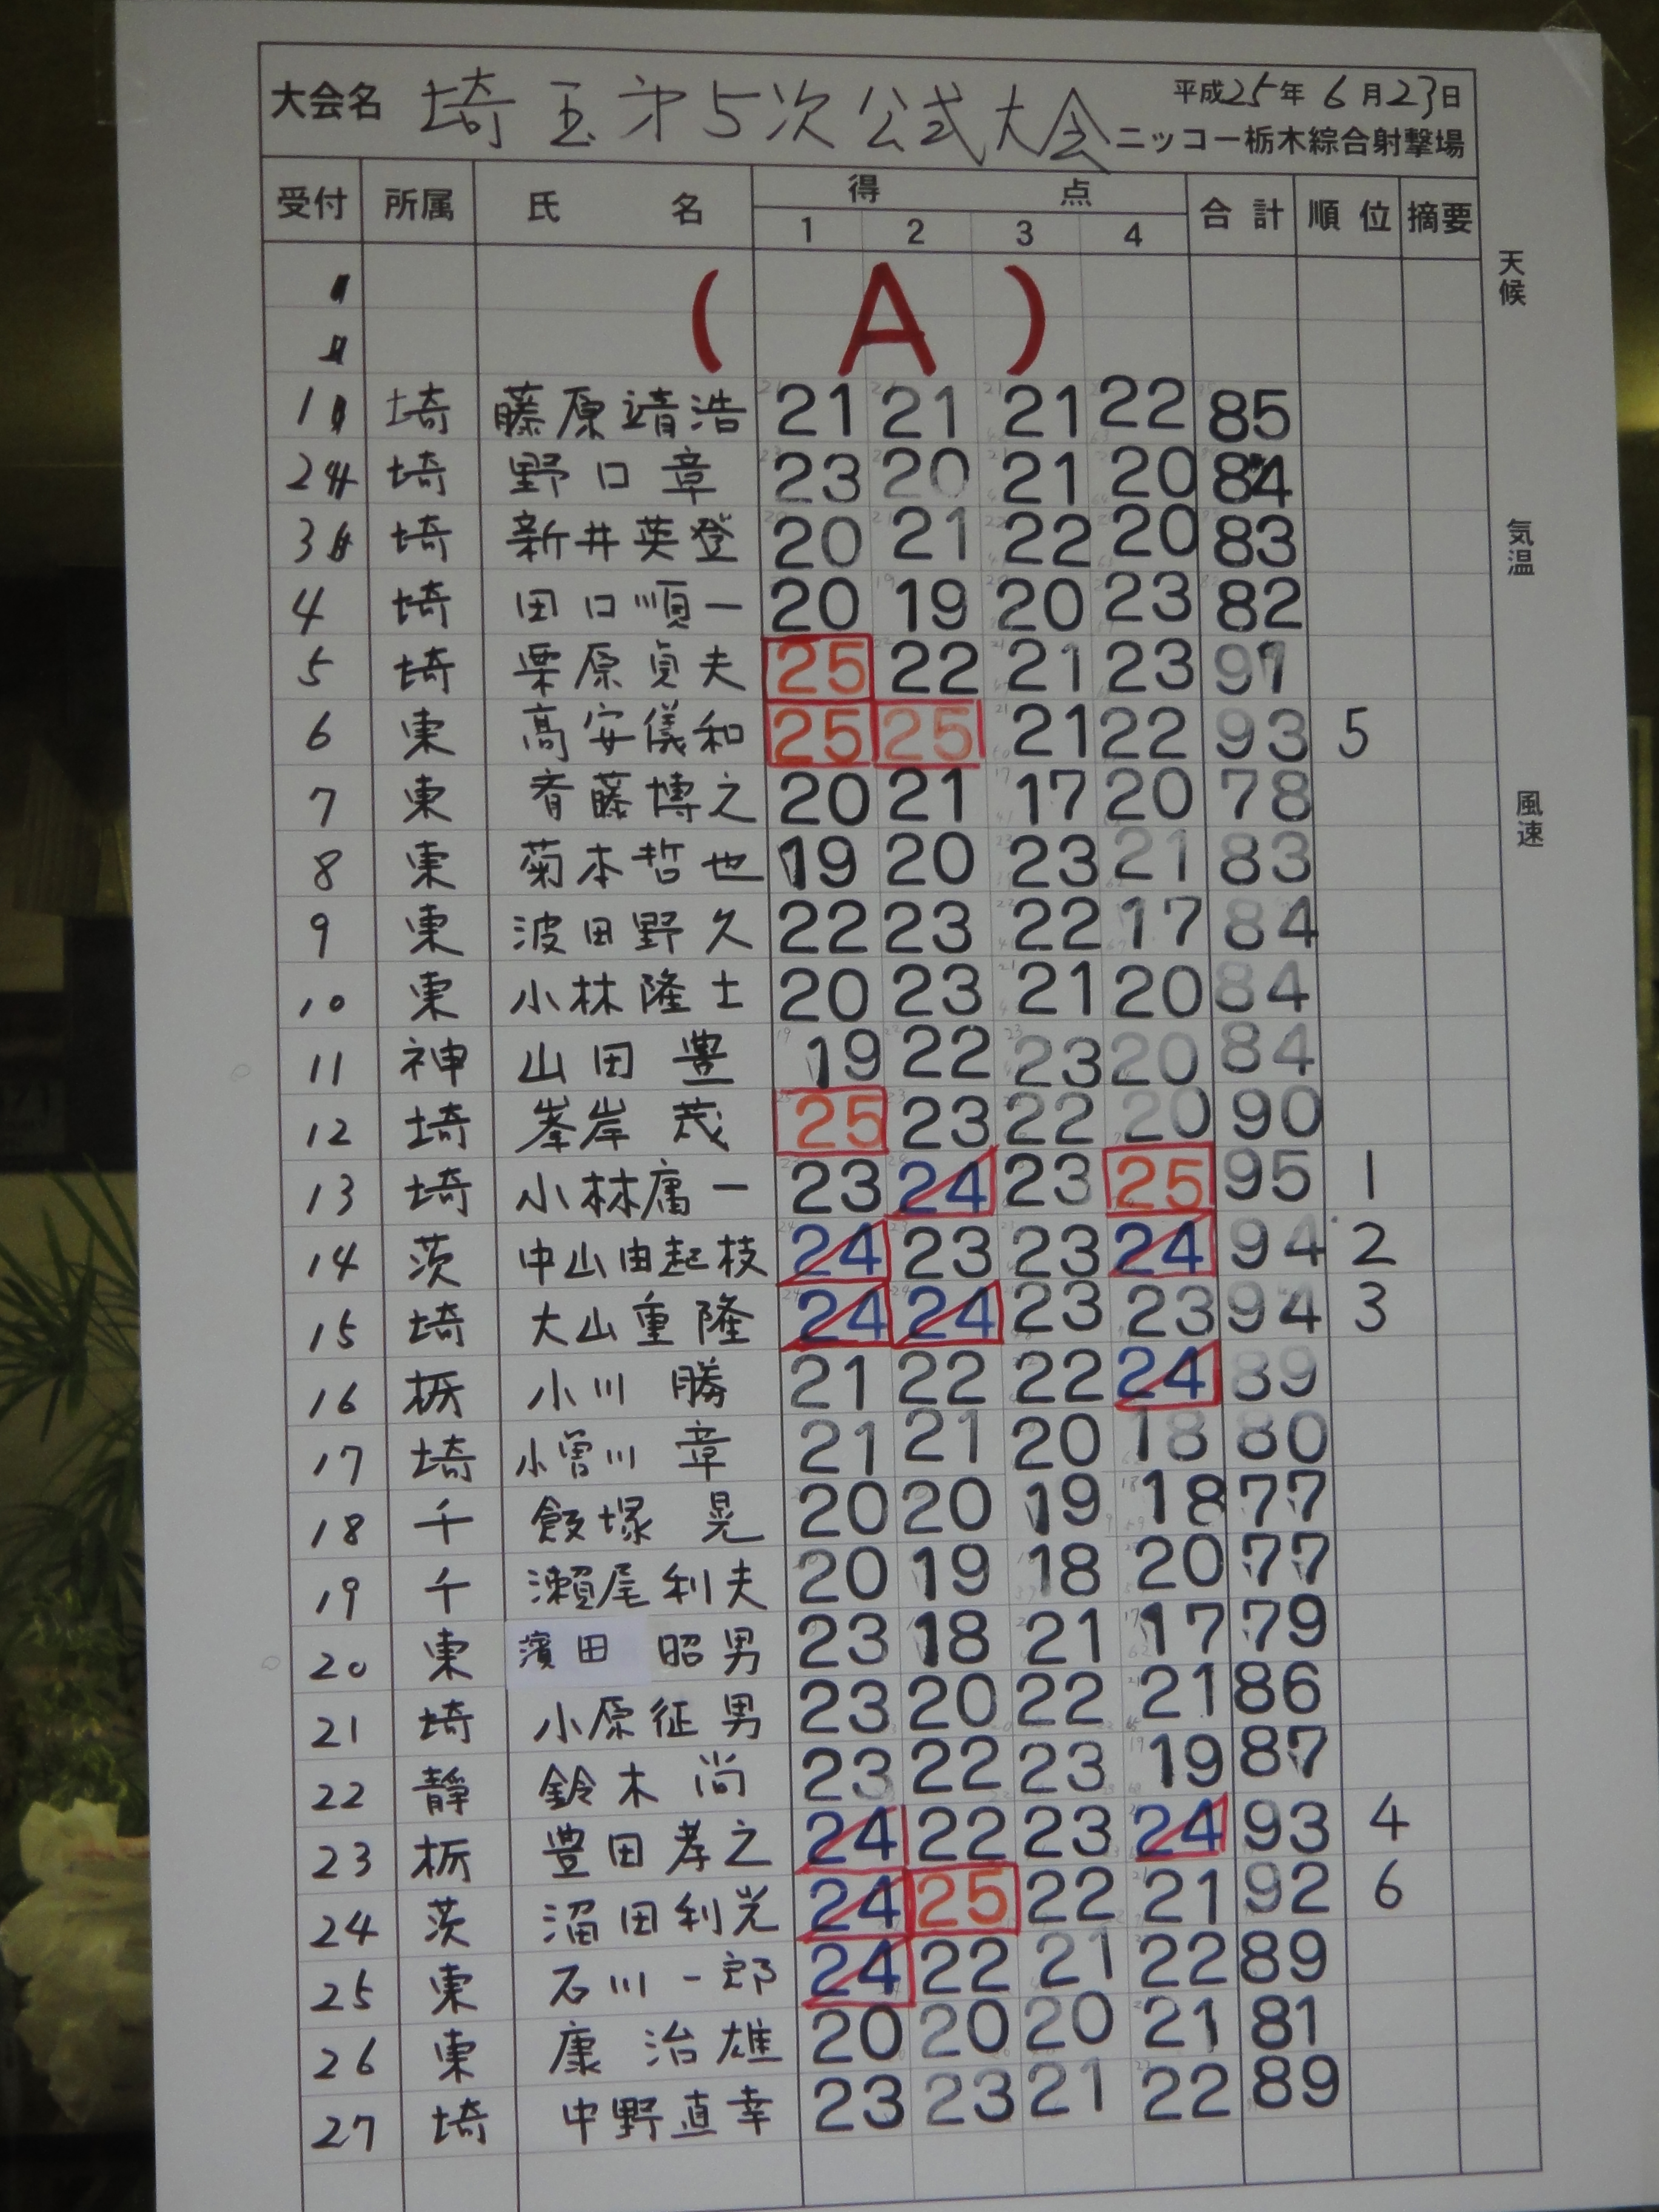 大会名 埼玉第5次公式大会 平成25年6月23日
ニッコー栃木綜合射撃場
受付 所属 氏名 得点 合計 順位 摘要
1 2 3 4
(A)
天候
気温
風速
1 埼 藤原靖浩 21 21 21 22 85
2 埼 野口章 23 20 21 20 84
3 埼 新井英登 20 21 22 20 83
4 埼 田口順一 20 19 20 23 82
5 埼 栗原貞夫 25 22 21 23 91
6 東 高安儀和 25 25 21 22 93 5
7 東 斉藤博之 20 21 17 20 78
8 東 菊本哲也 19 20 23 21 83
9 東 波田野久 22 23 22 17 84
10 東 小林隆士 20 23 21 20 84
11 神 山田豊 19 22 23 20 84
12 埼 峯岸茂 25 23 22 20 90
13 埼 小林庸一 23 24 23 25 95 1
14 茨 中山由起枝 24 23 23 24 94 2
15 埼 大山重隆 24 24 23 23 94 3
16 栃 小川勝 21 22 22 24 89
17 埼 小曽川章 21 21 20 18 80
18 千 飯塚晃 20 20 19 18 77
19 千 瀬尾利夫 20 19 18 20 77
20 東 濱田昭男 23 18 21 17 79
21 埼 小原征男 23 20 22 21 86
22 静 鈴木尚 23 22 23 19 87
23 栃 豊田孝之 24 22 23 24 93 4
24 茨 沼田利光 24 25 22 21 92 6
25 東 石川一郎 24 22 21 22 89
26 東 康治雄 20 20 20 21 81
27 埼 中野直幸 23 23 21 22 89